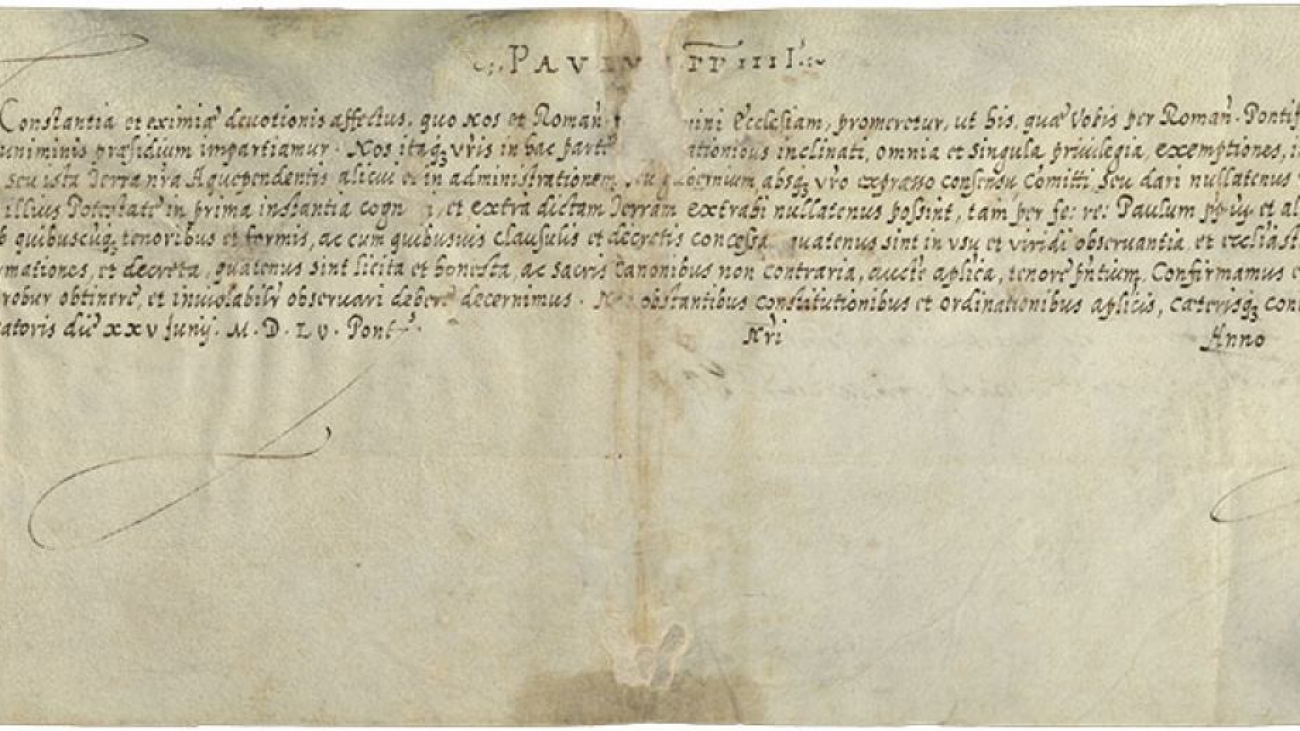 PAVLVS PP IIII
Constantia et eximiæ devotionis affectus, quo Nos et Roman̄ mini Ecclesiam, promeretur, ut his, quæ Vobis per Roman̄. Pontif
uniminis præsidium impartiamur. Nos itaqȝ vr̄is in hac parte ationibus inclinati, omnia et singula privilegia, exemptiones, i
seu ista Terra nr̄a Aquependentis alicui et in administrationem, seu gubernium, absqȝ vr̄o expresso consensu Comitti, seu dari nullatenus
illius Potestate in prima instantia cogn i, et extra dictam Terram extrahi nullatenus possint, tam per fe: re: Paulum pp iiȷ et al
quibuscūqȝ tenoribus et formis, ac cum quibusuis clausulis et decretis concessa, quatenus sint in usu et viridi observantia, et
mationes, et decreta, quatenus sint licita et honesta, ac sacris Canonibus non contraria, auctē aplica, tenore pn̄tium Confirmamus e
robur obtinere, et inviolabilr̄ observari debere decernimus. Non obstantibus constitutionibus et ordinationibus aplicis, cæterisqȝ con
atoris die XXV Junij. M. D. LV. Pont Nr̄i Anno